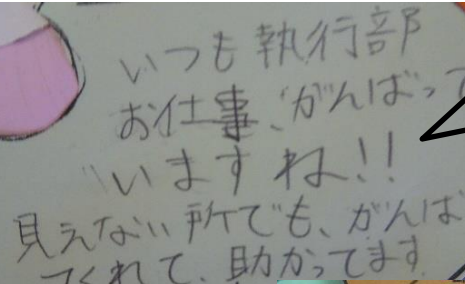 いつも執行部
お仕事、がんばって
いますね!!
見えない所でも、がんば
てくれて、助かってます